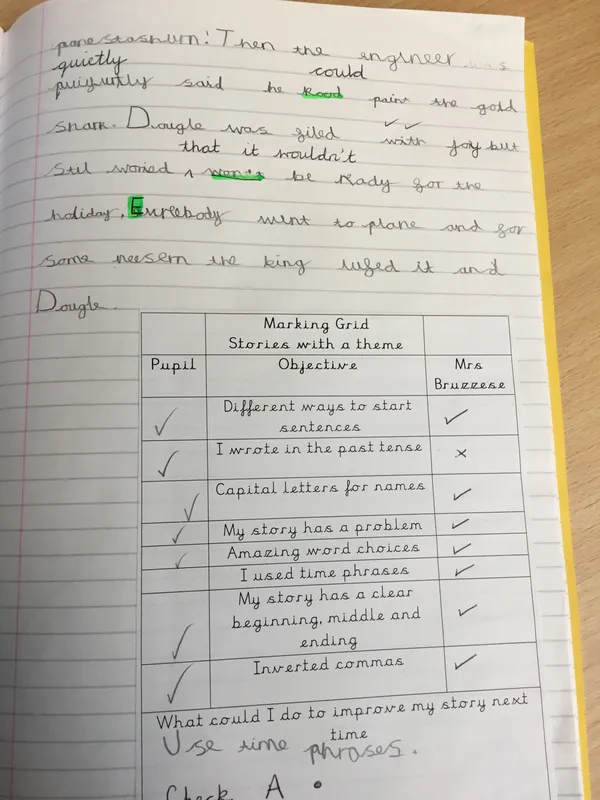 Then the engineer was
quietly could
said he kood paint the gold
Dougle was filed with joy but
that it wouldn't
stil woried won't be ready for the
holiday. went to plane and for
some the king lufed it and
Dougle.
Marking Grid
Stories with a theme
Pupil Objective Mrs Bruzzese
Different ways to start
sentences
I wrote in the past tense
Capital letters for names
My story has a problem
Amazing word choices
I used time phrases
My story has a clear
beginning, middle and
ending
Inverted commas
What could I do to improve my story next
time
Use time phrases.
Check A .